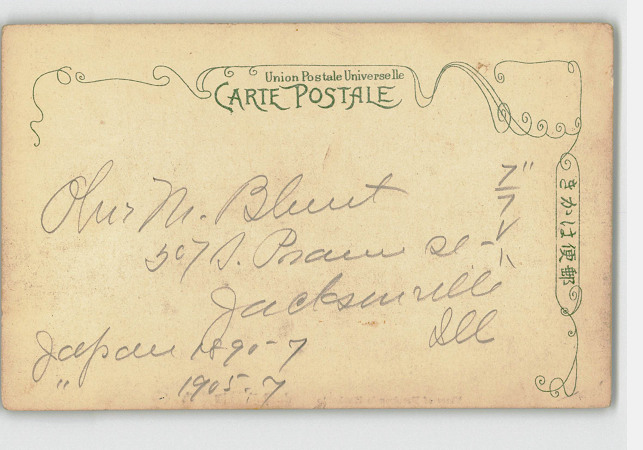 Union Postale Universelle
CARTE POSTALE
きかは便郵
M. Blunt
507 S. Prairie St-
Jacksonville
Ill
Japan 1890-7
" 1905-7
7"
7